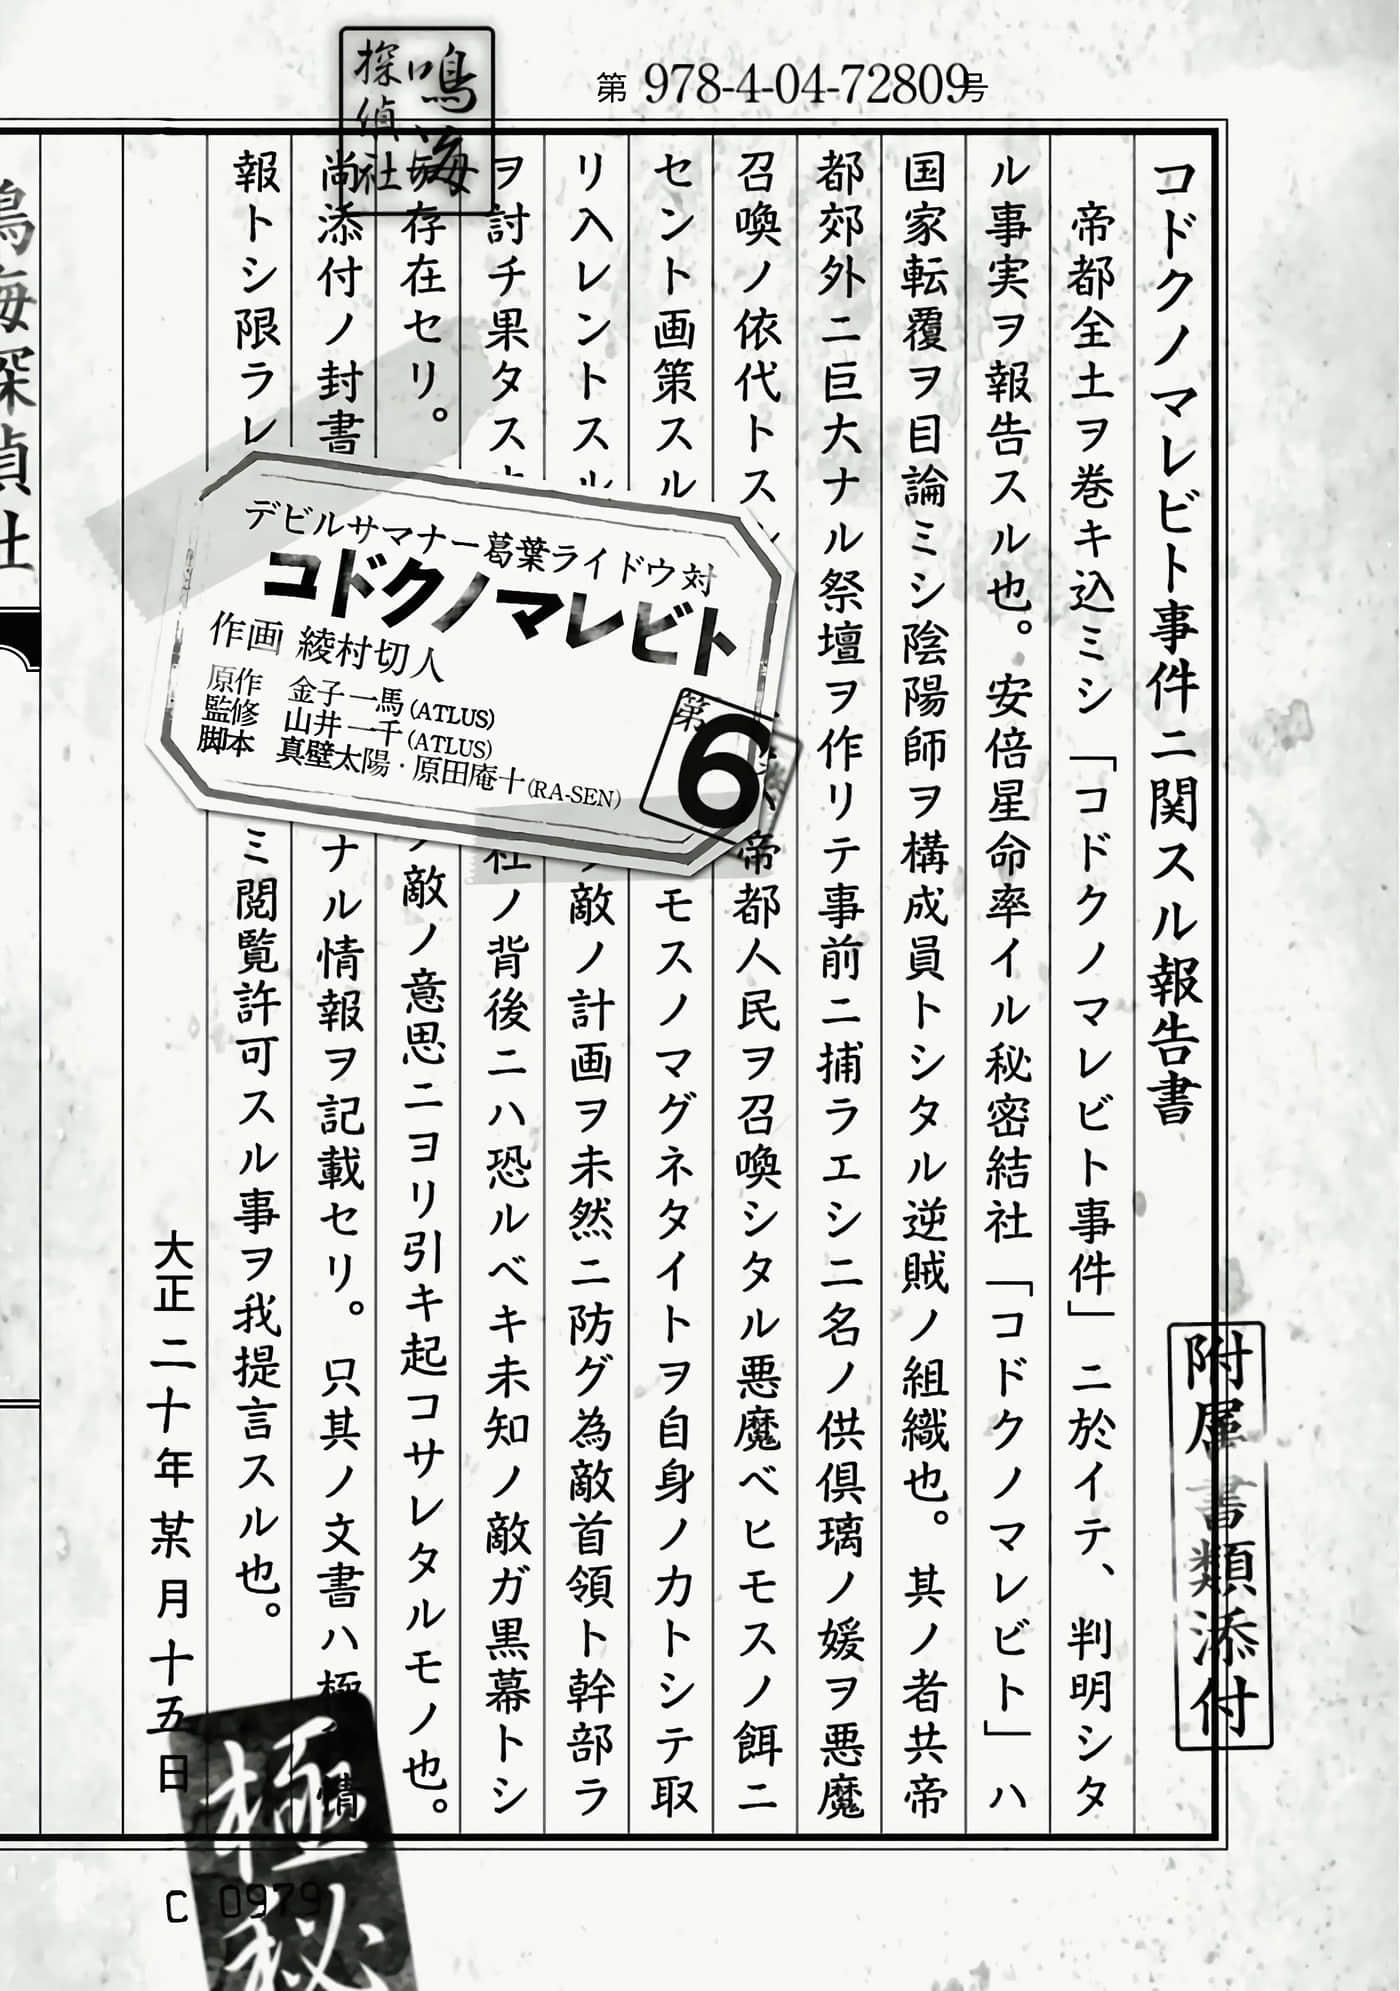 第 978-4-04-72809号
鳴海
探偵社
コドクノマレビト事件ニ関スル報告書
附属書類添付
帝都全土ヲ巻キ込ミシ「コドクノマレビト事件」ニ於イテ、判明シタ
ル事実ヲ報告スル也。安倍星命率イル秘密結社「コドクノマレビト」ハ
国家転覆ヲ目論ミシ陰陽師ヲ構成員トシタル逆賊ノ組織也。其ノ者共帝
都郊外ニ巨大ナル祭壇ヲ作リテ事前ニ捕ラエシ二名ノ供倶璃ノ媛ヲ悪魔
召喚ノ依代トス
帝都人民ヲ召喚シタル悪魔ベヒモスノ餌ニ
セント画策スル
モスノマグネタイトヲ自身ノ力トシテ取
リ入レントスル
敵ノ計画ヲ未然ニ防グ為敵首領ト幹部ラ
ヲ討チ果タス
社ノ背後ニハ恐ルベキ未知ノ敵ガ黒幕トシ
存在セリ。
敵ノ意思ニヨリ引キ起コサレタルモノ也。
尚添付ノ封書
ナル情報ヲ記載セリ。只其ノ文書ハ極
情
報トシ限ラレ
ミ閲覧許可スル事ヲ我提言スル也。
大正二十年某月十五日
デビルサマナー葛葉ライドウ対
コドクノマレビト
作画 綾村切人
原作 金子一馬(ATLUS)
監修 山井一千(ATLUS)
脚本 真壁太陽・原田庵十(RA-SEN)
第6
鳴海探偵社
極秘
C 0979